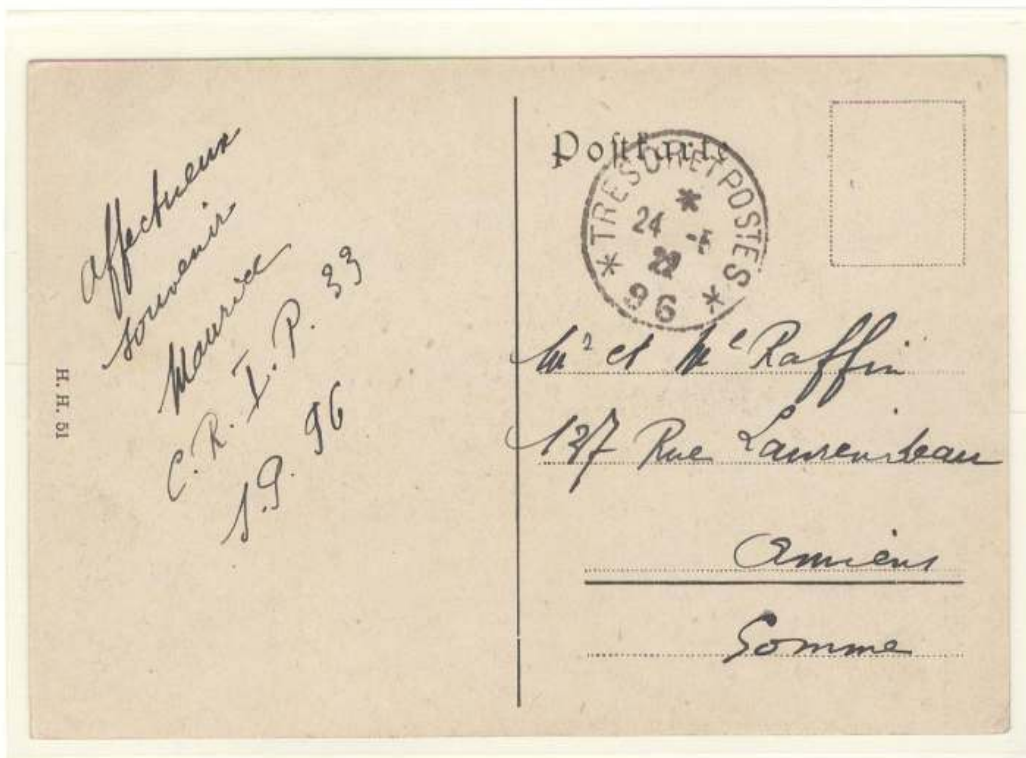 affectueux
souvenir
Maurice
C. R. I. P. 33
S.P. 96
H. H. 51
Postkarte
* TRESOR ET POSTES *
*
24 -5
22
96
Mr et Me Raffin
127 Rue Laurendeau
Amiens
Somme